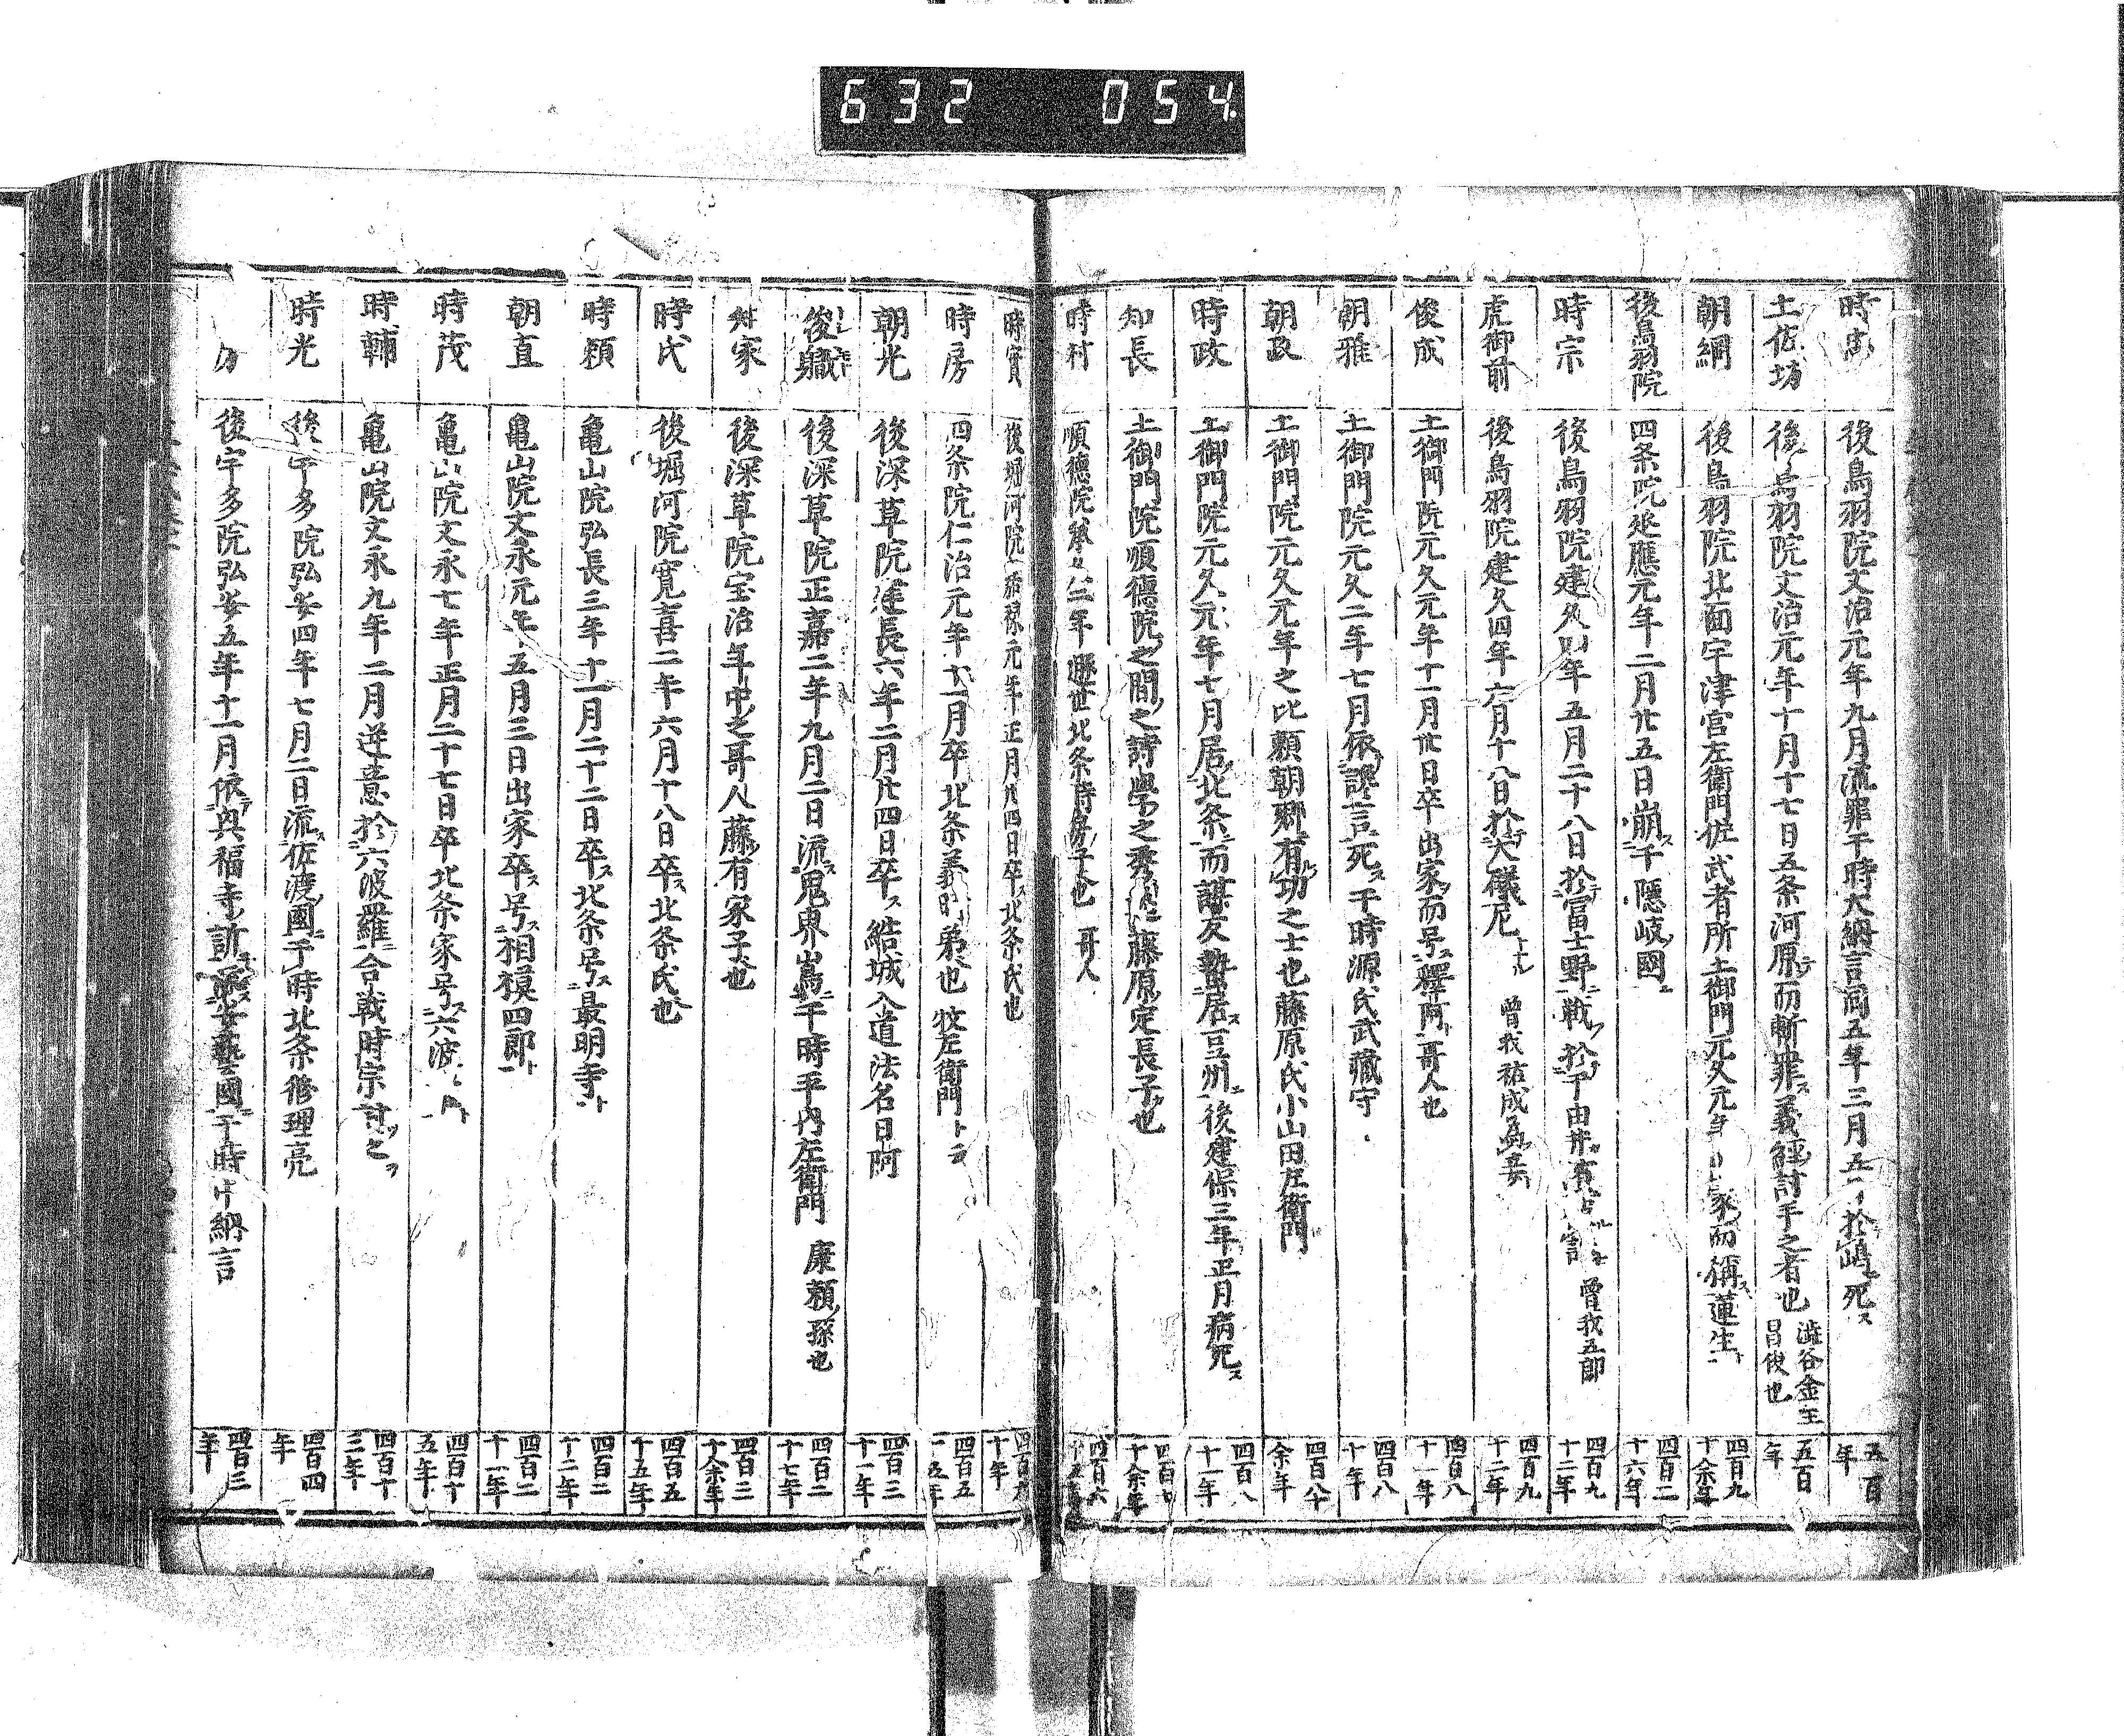 632 054
時忠 後鳥羽院文治元年九月流罪于時大納言同五年三月五 於嶋死ス 五百年
土佐坊 後鳥羽院文治元年十月十七日五条河原ニテ而斬罪ス義経討手之者也 澁谷金王昌俊也 五百年
朝綱 後鳥羽院北面宇津宮左衛門佐武者所土御門元久元年 家而稱蓮生ト 四百九十余年
後鳥羽院 四条院延應元年二月廿五日崩ス于隠岐國ニ 四百二十六年
時宗 後鳥羽院建久四年五月二十八日於テ冨士野ニ戦 於 曽我五郎 四百九十二年
虎御前 後鳥羽院建久四年六月十八日於テ大礒尼トナル 曽我祐成為妾 四百九十二年
俊成 土御門院元久元年十一月廿日卒出家而号ス釋阿ト哥人也 四百八十一年
朝雅 土御門院元久二年七月依讒言死ス于時源氏武藏守 四百八十年
朝政 土御門院元久元年之比頼朝郷有功之士也藤原氏小山田左衛門 四百八十余年
時政 土御門院元久元年七月居北条ニ而謀反蟄居ス豆州ニ後建保三年正月病死ス 四百八十一年
知長 土御門院順徳院之間之詩學之秀 藤原定長子也 十余年
時村 順徳院承久二年遯世北条時房子也 哥人 四百六
時實 後堀河院 元年正月廿四日卒ス北条氏也 十年
時房 四条院仁治元年十一月卒北条義時弟也 牧左衛門トモ 四百五
朝光 後深草院建長六年二月廿四日卒ス結城入道法名日阿 四百三十一年
俊職 後深草院正嘉二年九月二日流ス鬼界嶌ニ于時平内左衛門 康頼孫也 四百二十七年
舛家 後深草院宝治年中之哥人藤有家子也 四百三十余年
時氏 後堀河院寛喜二年六月十八日卒ス北条氏也 四百五十五年
時頼 亀山院弘長三年十一月二十二日卒ス北条号ス最明寺ト 四百二十二年
朝直 亀山院文永元年五月三日出家卒ス号ス相模四郎ト 四百二十一年
時茂 亀山院文永七年正月二十七日卒北条家号ス六波 四百十五年
時輔 亀山院文永九年二月逆意於六波羅ニ合戦時宗討之ヲ 四百十三年
時光 後宇多院弘安四年七月二日流ス佐渡國ニ于時北条修理亮 四百四年
後宇多院弘安五年十一月依テ興福寺訴 安藝國ニ于時中納言 四百三年